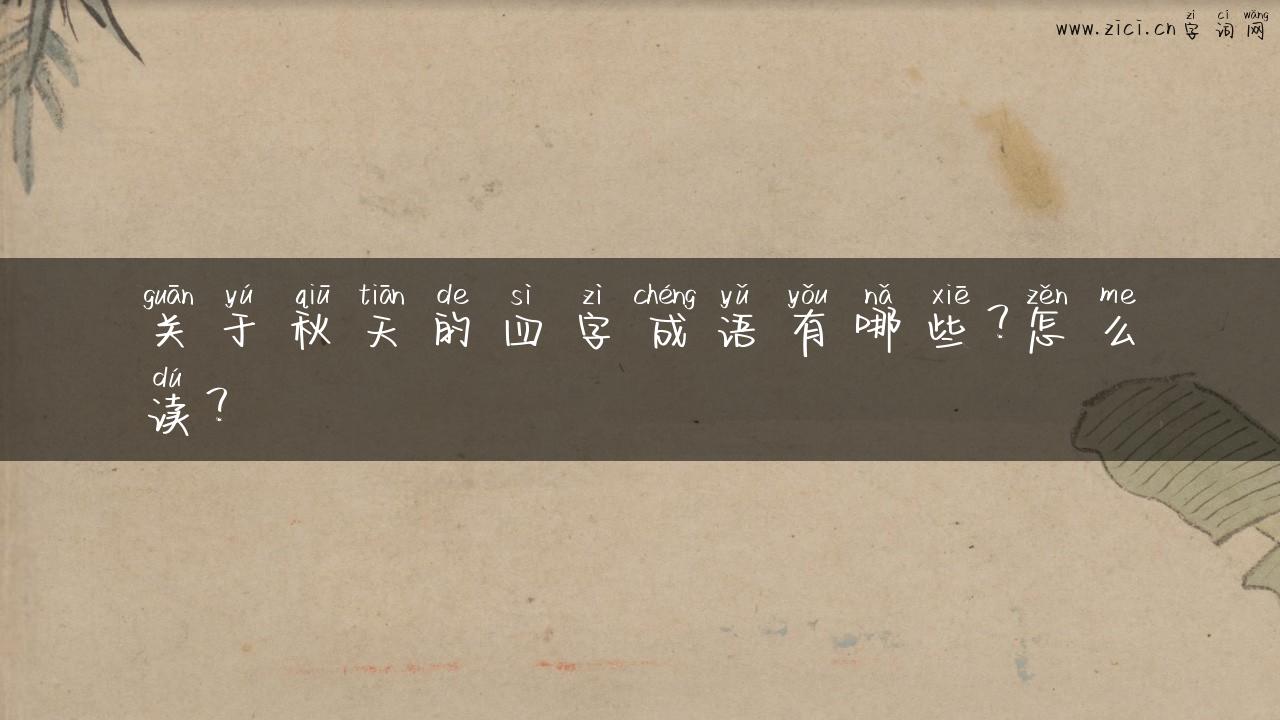 zì cí wǎng
www.zici.cn 字词网
guān yú qiū tiān de sì zì chéng yǔ yǒu nǎ xiē zěn me
关于秋天的四字成语有哪些？怎么
dú
读？